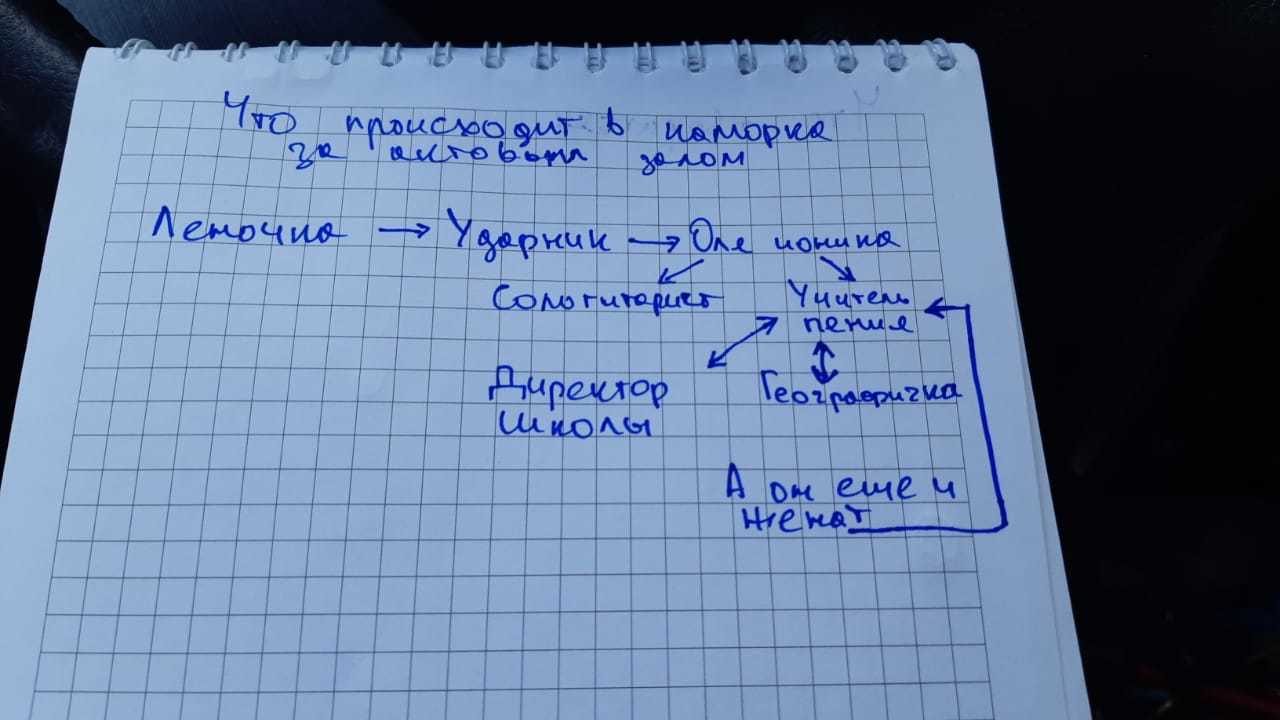 Что происходит в каморка
за актовым залом
Леночка → Ударник → Оле ионика
Сологитарист
Учитель
пения
Директор
школы
Географичка
А он еще и
женат